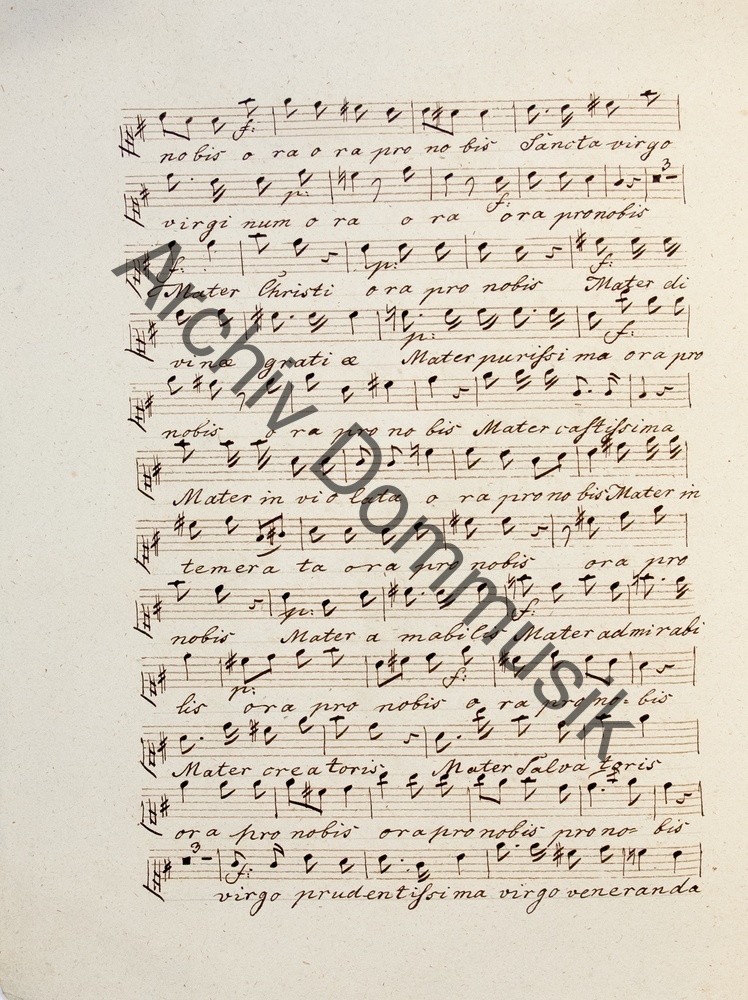 f:
nobis o ra o ra pro no bis Sancta virgo
p: f: 3
virgi num o ra o ra ora pronobis
f: p: f:
Mater Christi o ra pro nobis Mater di
p: f:
vinæ grati æ Mater purissi ma ora pro
nobis o ra pro no bis Mater castissima
Mater in vi o lata o ra pro no bis Mater in
temera ta o ra pro nobis ora pro
p: f:
nobis Mater a mabilis Mater admirabi
p: f:
lis ora pro nobis o ra pro no= bis
Mater creatoris Mater Salva toris
ora pro nobis ora pro nobis pro no= bis
3 f:
virgo prudentissima virgo veneranda
Archiv Dommusik